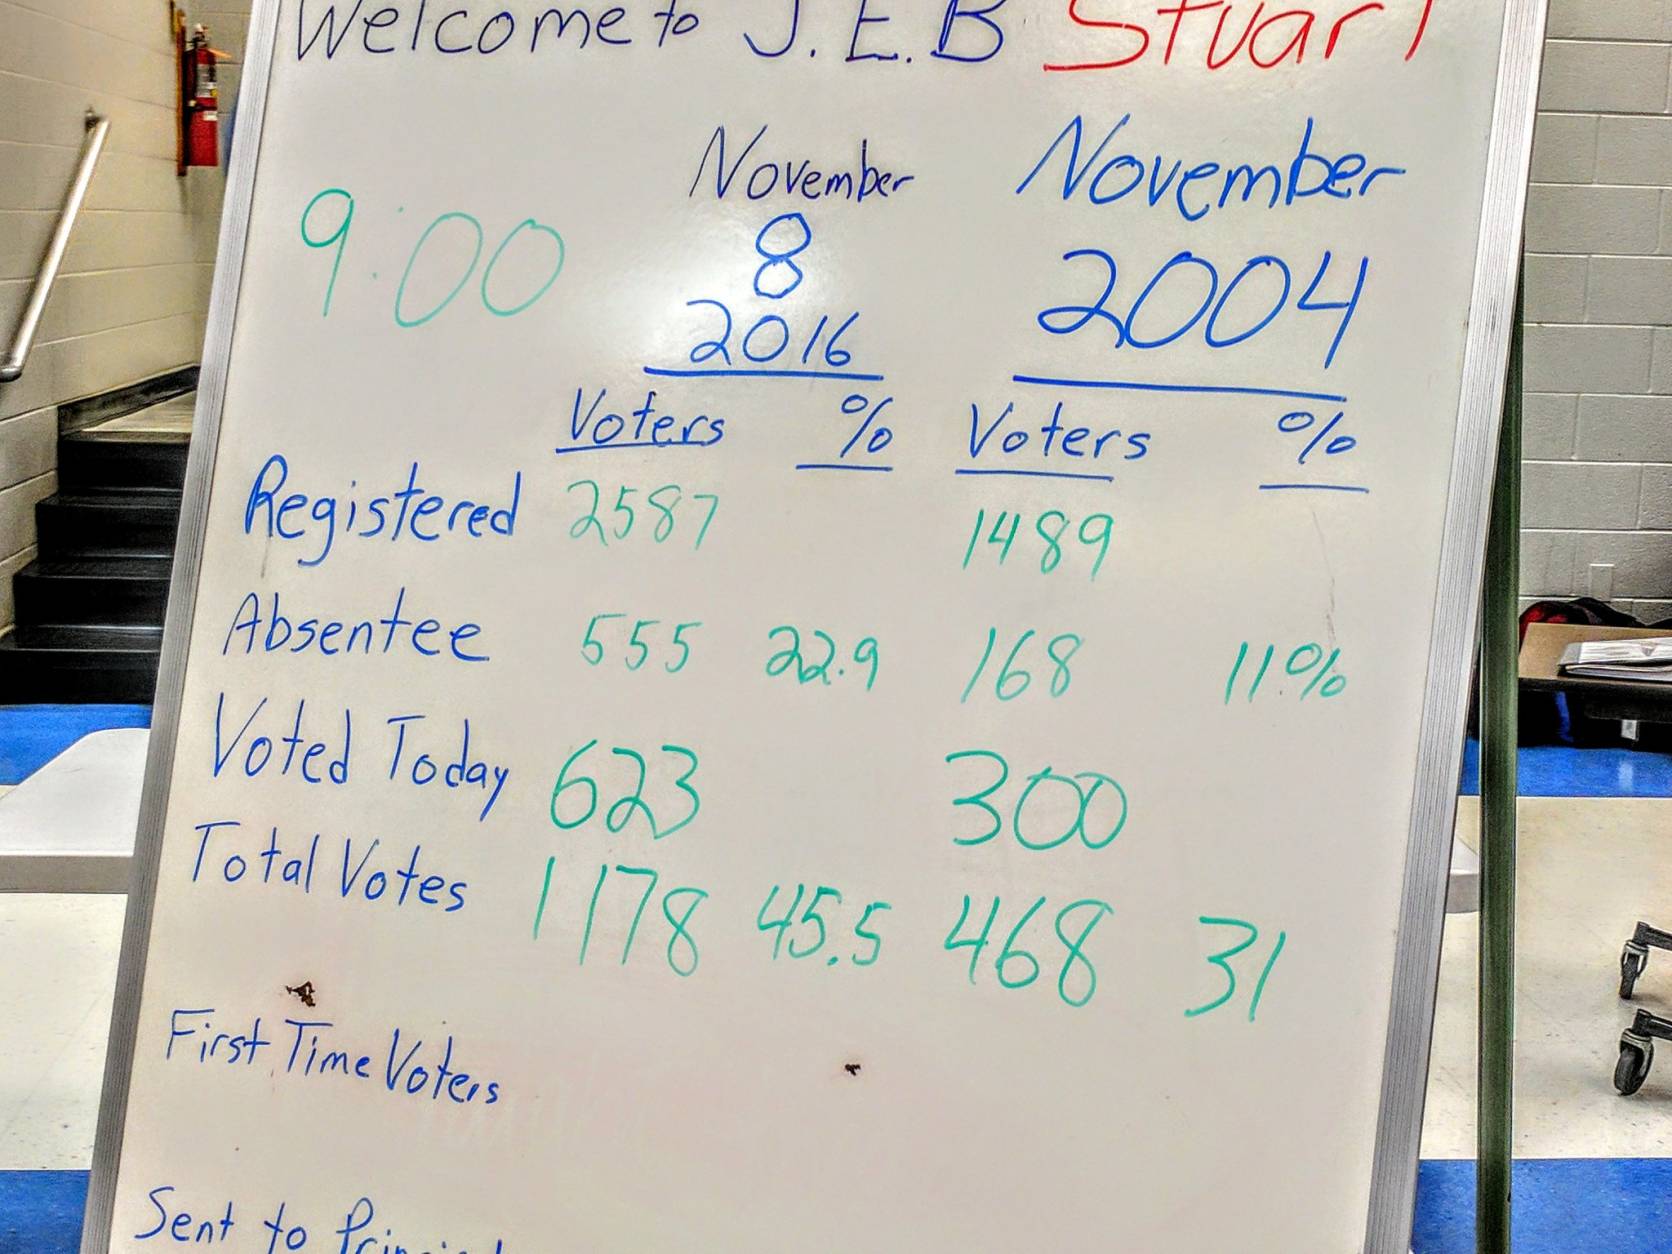 Welcome to J.E.B Stuart
November November
9:00 8 2004
2016
Voters % Voters %
Registered 2587 1489
Absentee 555 22.9 168 11%
Voted Today 623 300
Total Votes 1178 45.5 468 31
First Time Voters
Sent to